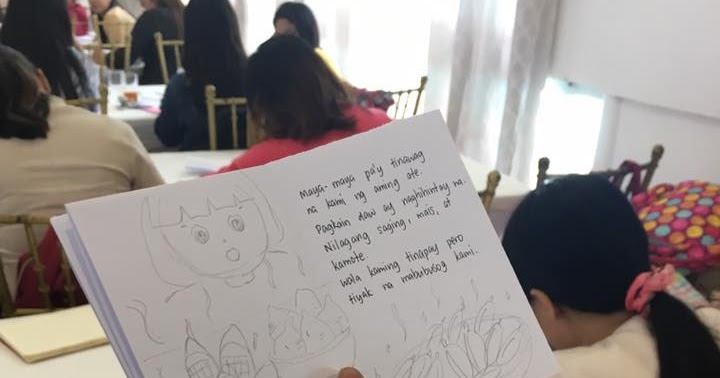 Maya-maya pa'y tinawag
na kami ng aming ate.
Pagkain daw ay naghihintay na.
Nilagang saging, mais, at
kamote
wala kaming tinapay pero
tiyak na mabubusog kami.